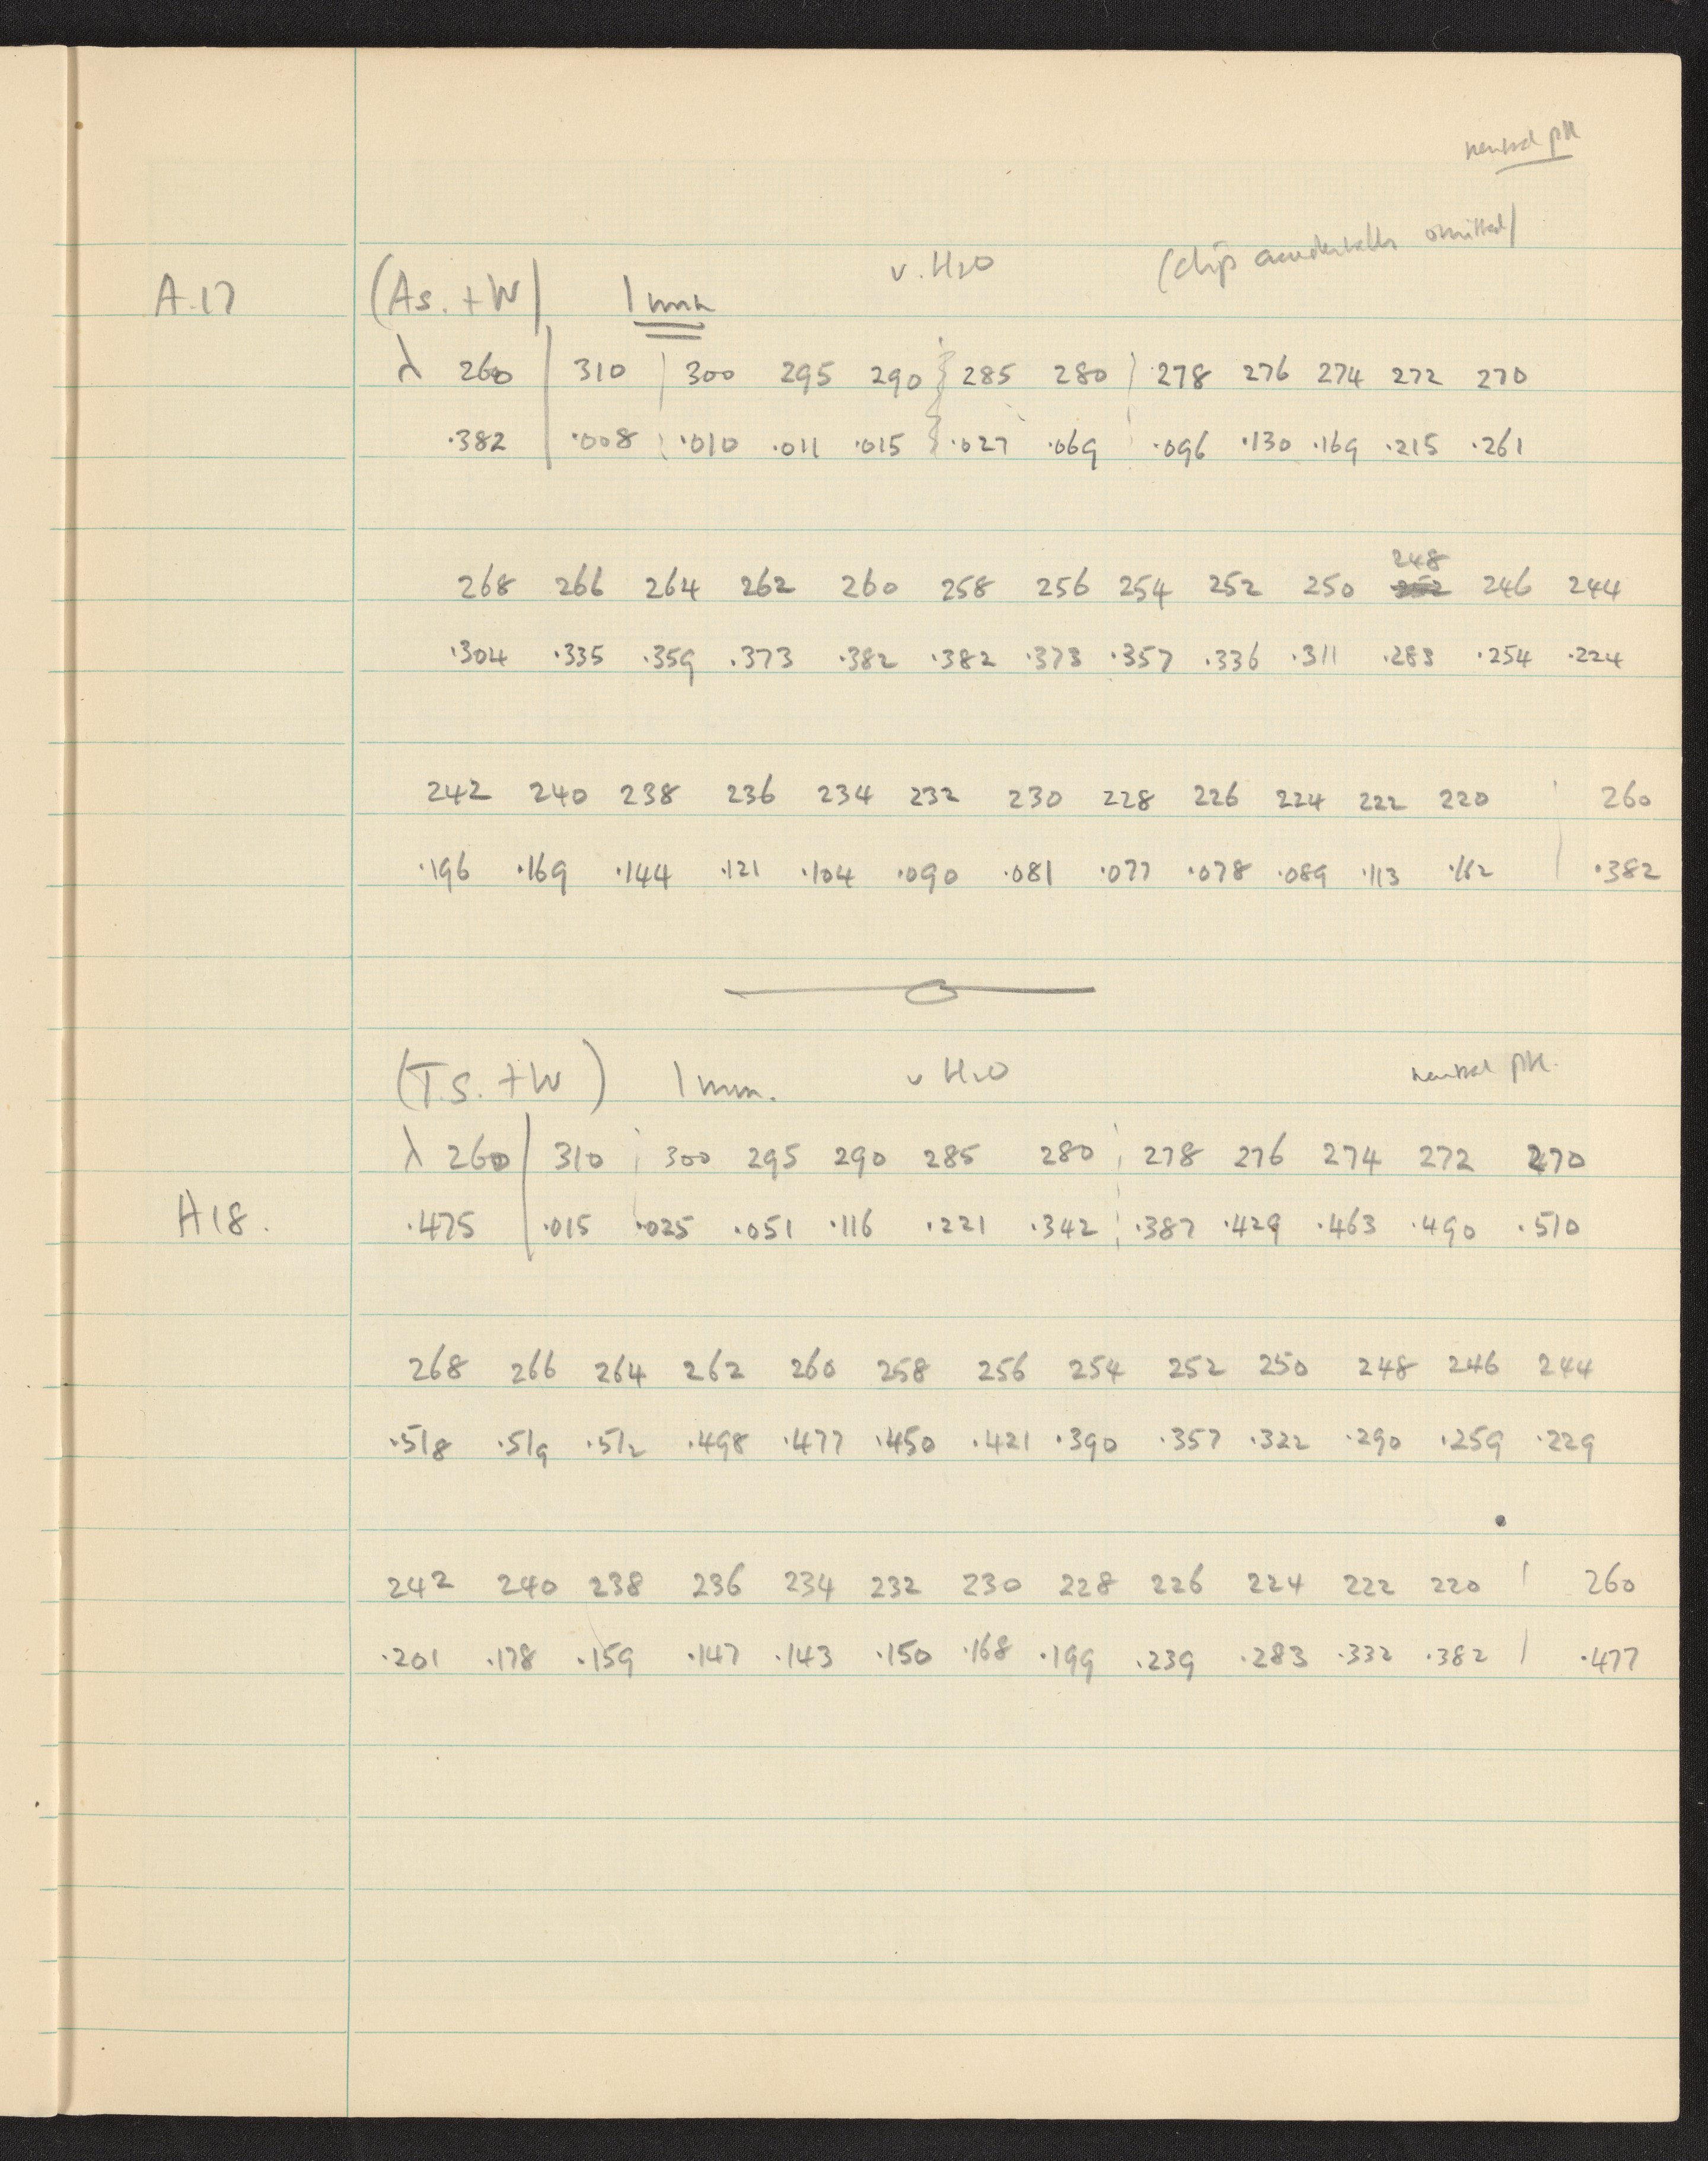 neutral pH
v. H2O (clip accidentally omitted)
A.17 (As. + W) 1 mm
λ 260 | 310 300 295 290 285 280 278 276 274 272 270
.382 | .008 .010 .011 .015 .027 .069 .096 .130 .169 .215 .261
248
268 266 264 262 260 258 256 254 252 250 252 246 244
.304 .335 .359 .373 .382 .382 .373 .357 .336 .311 .283 .254 .224
242 240 238 236 234 232 230 228 226 224 222 220 | 260
.196 .169 .144 .121 .104 .090 .081 .077 .078 .089 .113 .162 | .382
(T.S. + W) 1 mm. v H2O neutral pH.
λ 260 | 310 300 295 290 285 280 278 276 274 272 270
A18. .475 | .015 .025 .051 .116 .221 .342 .387 .429 .463 .490 .510
268 266 264 262 260 258 256 254 252 250 248 246 244
.518 .519 .512 .498 .477 .450 .421 .390 .357 .322 .290 .259 .229
242 240 238 236 234 232 230 228 226 224 222 220 | 260
.201 .178 .159 .147 .143 .150 .168 .199 .239 .283 .332 .382 | .477